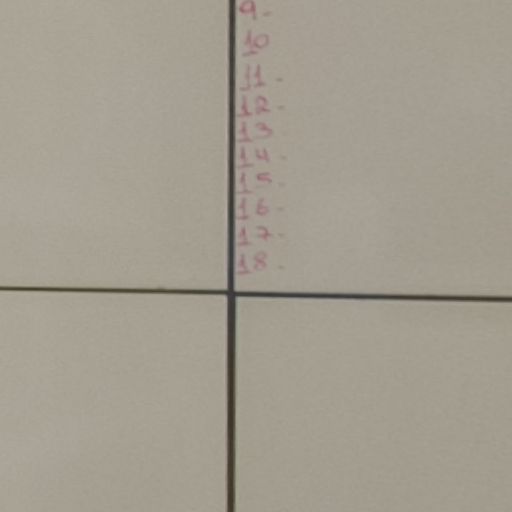 9-
10
11-
12-
13
14-
15-
16-
17-
18-